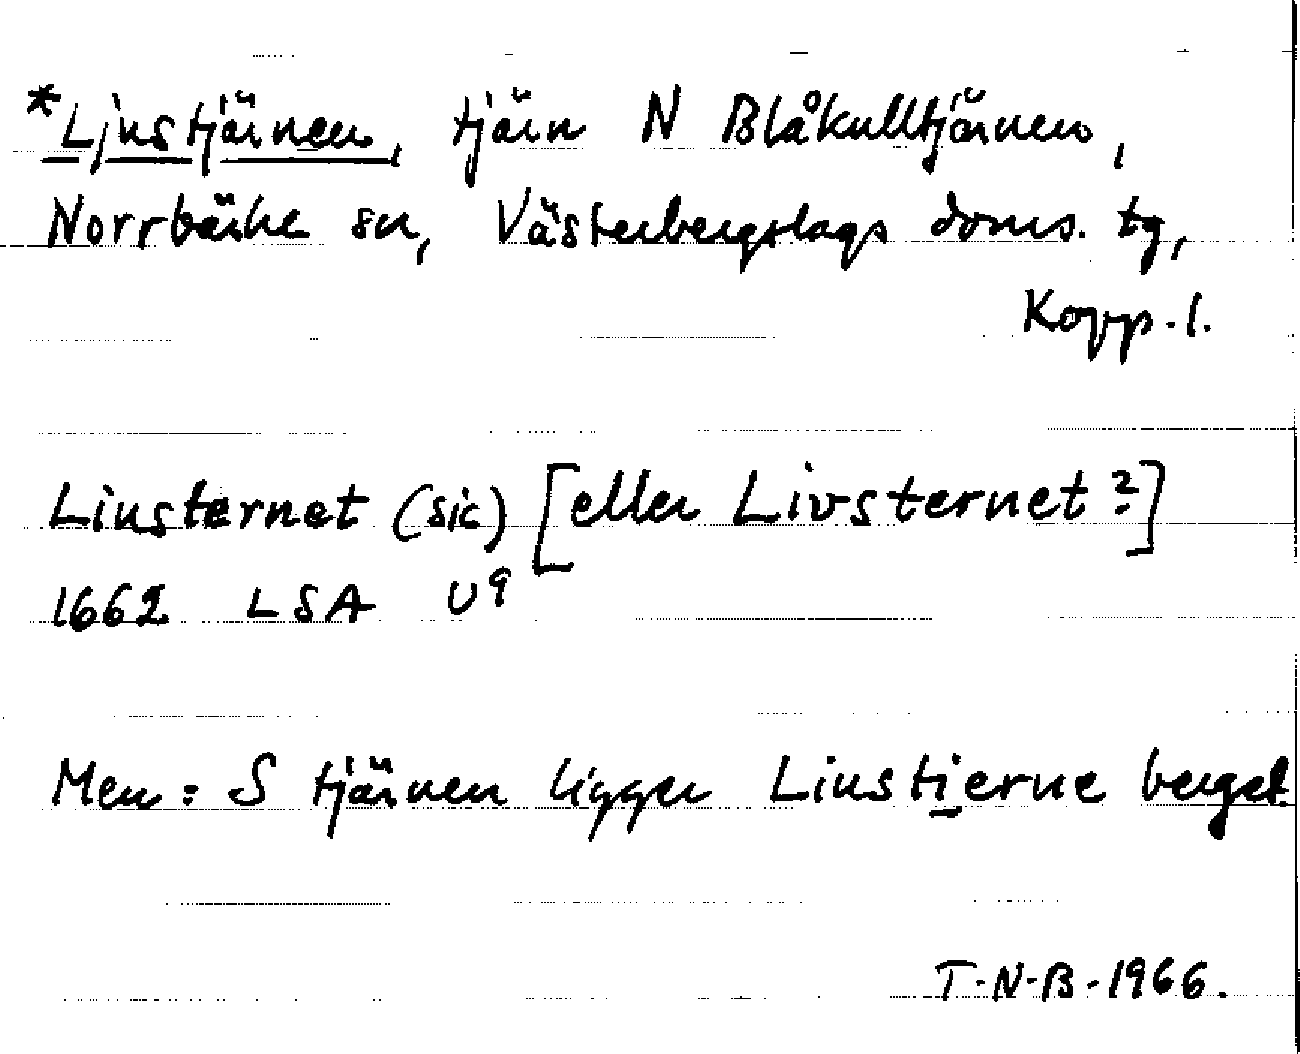 *Ljustjärnen, tjärn N Blåkulltjärnen,
Norrbärke sn, Västerbergslags doms. tg,
Kopp. l.
Liusternet (sic) [eller Livsternet?]
1662 LSA U9
Men: S tjärnen ligger Liustierne berget
T.N.B. 1966.